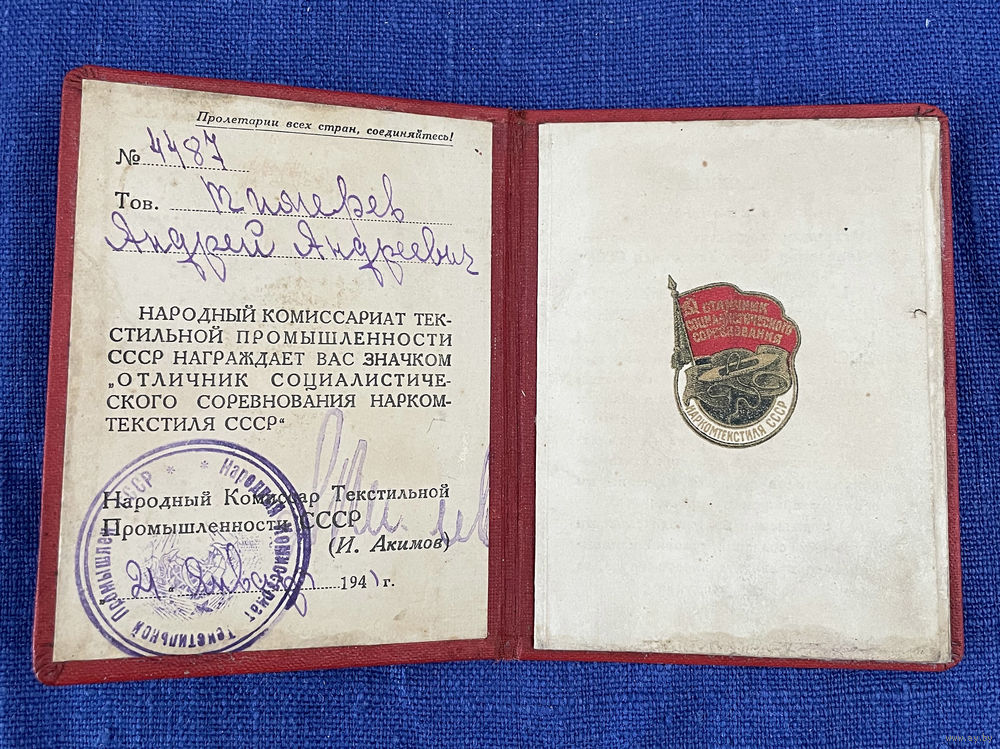 Пролетарии всех стран, соединяйтесь!
№ 4487
Тов.
Андрей Андреевич
НАРОДНЫЙ КОМИССАРИАТ ТЕК-
СТИЛЬНОЙ ПРОМЫШЛЕННОСТИ
СССР НАГРАЖДАЕТ ВАС ЗНАЧКОМ
„ОТЛИЧНИК СОЦИАЛИСТИЧЕ-
СКОГО СОРЕВНОВАНИЯ НАРКОМ-
ТЕКСТИЛЯ СССР“
Народный Комиссар Текстильной
Промышленности СССР
(И. Акимов)
21 Января 1941 г.
Народный Комиссариат Текстильной Промышлен СССР
ОТЛИЧНИК
СОЦИАЛИСТИЧЕСКОГО
СОРЕВНОВАНИЯ
НАРКОМТЕКСТИЛЯ СССР
www.av.by